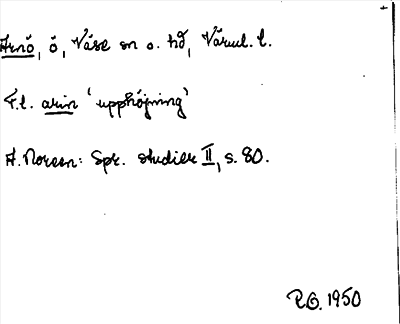 Arnö, ö, Väse sn o. hd, Värml. l.
F.l. arin 'upphöjning'
A. Noreen: Spr. studier II, s. 80.
R.G. 1950